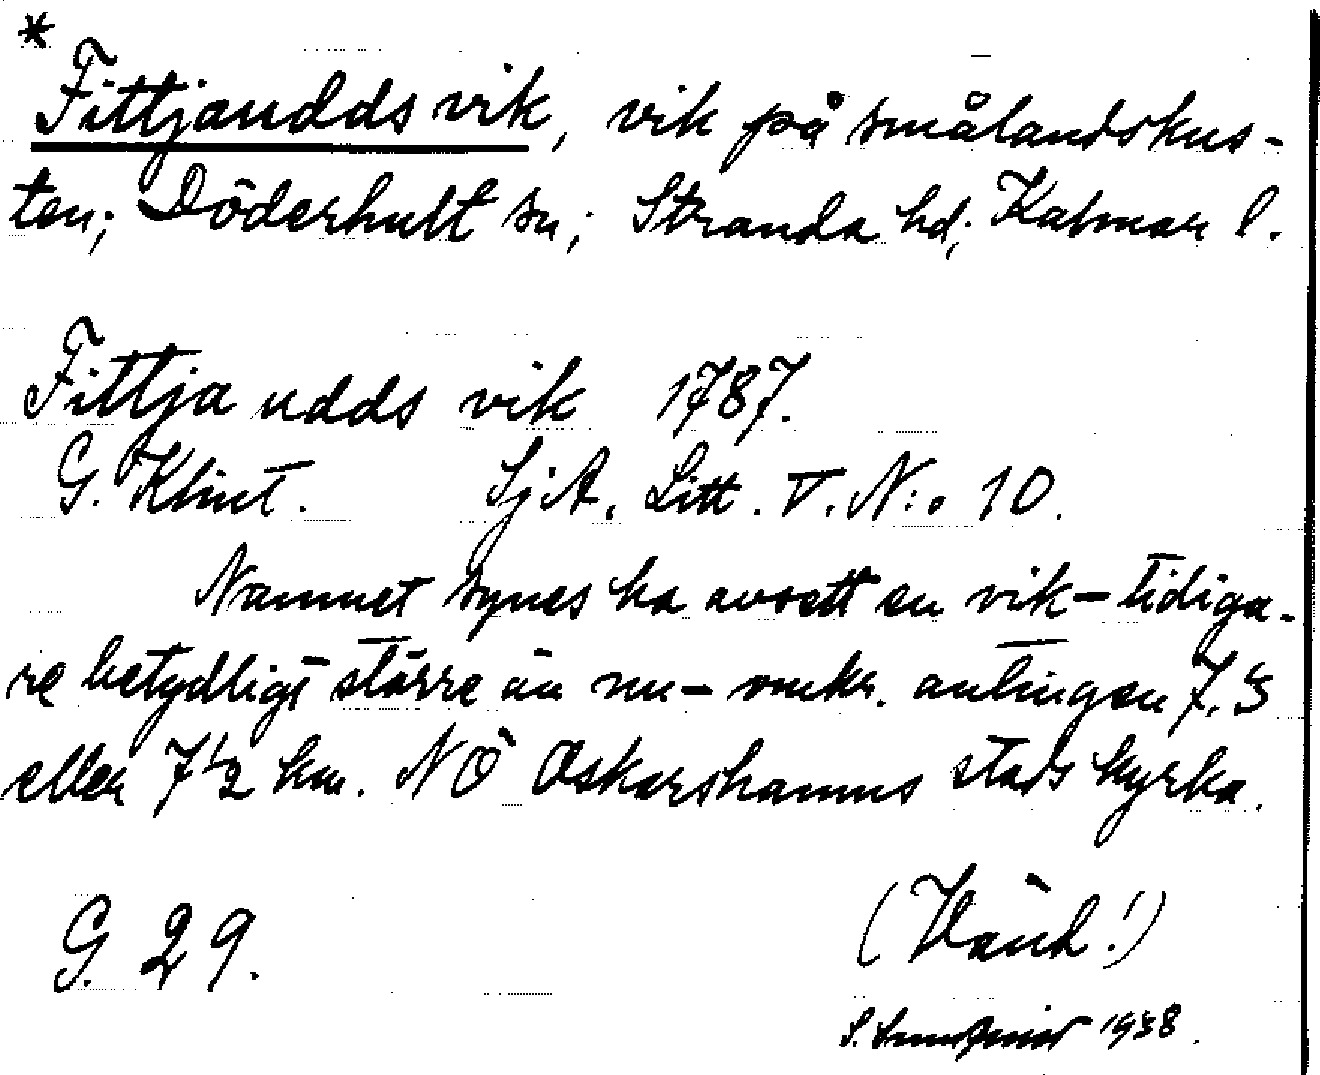 *
Fittjaudds vik, vik på smålandskus-
ten; Döderhult sn; Stranda hd; Kalmar l.
Fittja udds vik 1787.
G. Klint. SjA. Litt. V. N:o 10.
Namnet synes ha avsett en vik – tidiga-
re betydligt större än nu – omkr. antingen 7,5
eller 7 1/2 km. NÖ Oskarshamns stads kyrka.
(Vänd!)
G. 29.
S. 1938.